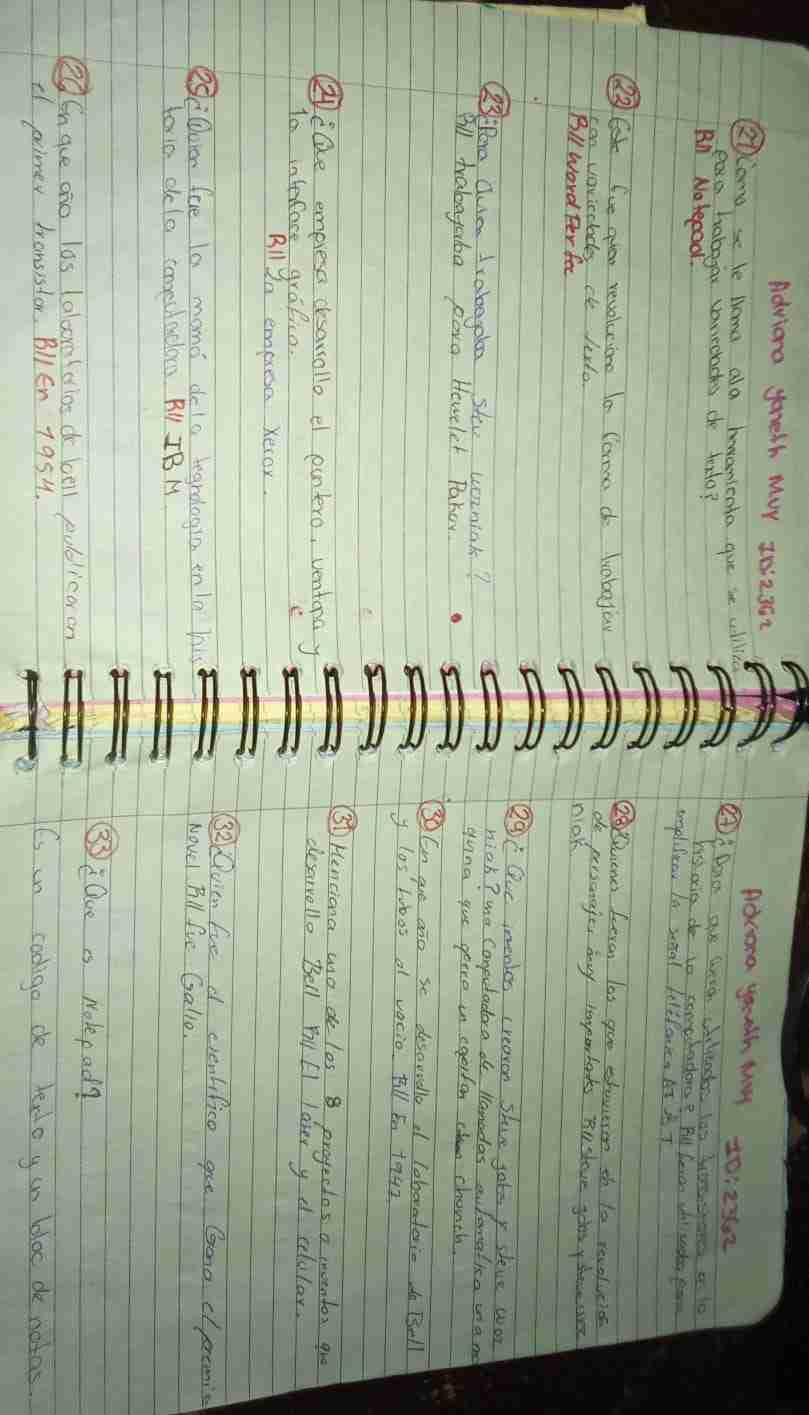 Adriana yaneth Muy ID:2362
21 Como se le llama ala herramienta que se utiliza
para trabajar variedades de texto?
R// Notepad.
22 Este fue quien revoluciono la forma de trabajar
con variedades de texto.
R// Word Perfec
23 ¿Para Quien trabajaba Stev wozniak?
R// trabajaba para Hewelet Pakar.
24 ¿Que empresa desarrollo el puntero, ventana y
la interface gráfica.
R// La empresa Xerox.
25 ¿Quien fue la mamá de la tegnologia en la his
toria de la computadora R// IBM
26 En que año los laboratorios de bell publicaron
el primer transistor. R// En 1954.
Adriana yaneth Muy ID:2362
27 ¿Para que
historia de la computadora? R//
amplificar la señal telefonica AT & T
28 Quienes fueron los que estuvieron en la revolucion
de personajes muy importantes R// Steve jobs y Steve woz
niak
29 ¿Que inventos crearon Steve jobs y steve woz
niak? una Computadora de llamadas automatica una ma
quina que
30 En que año se desarrollo el laboratorio de Bell
y los tubos al vacio. R// En 1947
31 Menciona uno de los 8 proyectos o inventos que
desarrollo Bell R// El laser y el celular.
32 ¿Quien fue el cientifico que Gano el premio
Novel R// fue Galio.
33 ¿Que es Notepad?
Es un codigo de texto y un bloc de notas.